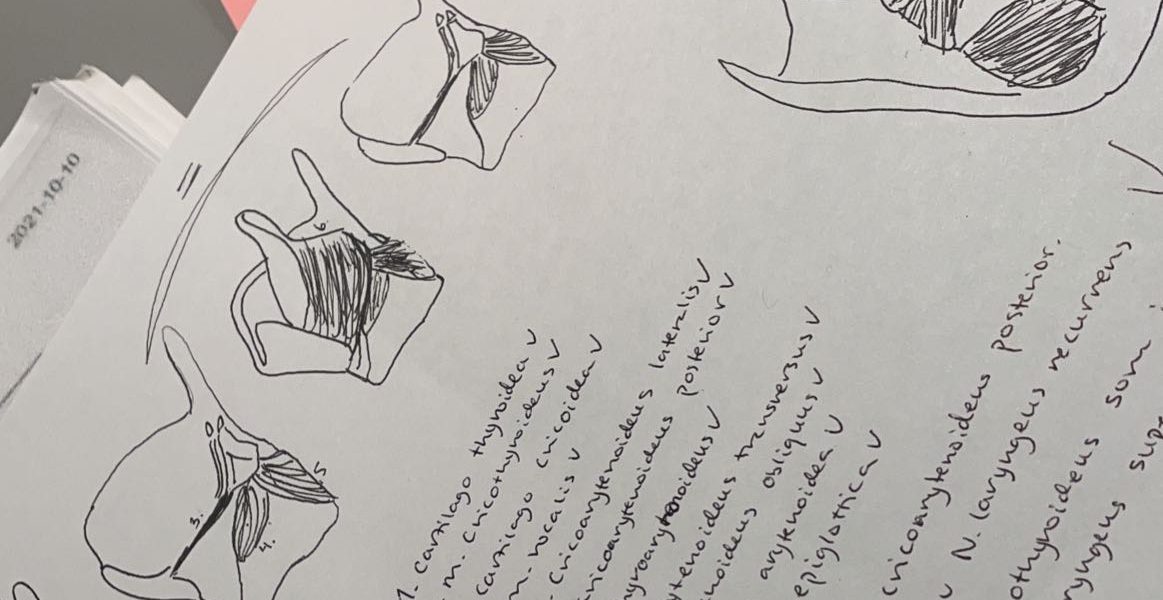 2021-10-10
6.
3.
4.
5.
1. Cartilago thyroidea ✓
m. cricothyroideus ✓
cartilago cricoidea ✓
m. vocalis ✓
cricoarytenoideus lateralis ✓
cricoarytenoideus posterior ✓
yroarytenoideus ✓
ytenoideus transversus ✓
noideus obliquus ✓
arytenoidea ✓
epiglottica ✓
cricoarytenoideus posterior.
N. laryngeus recurrens
othyroideus som
ryngeus sup